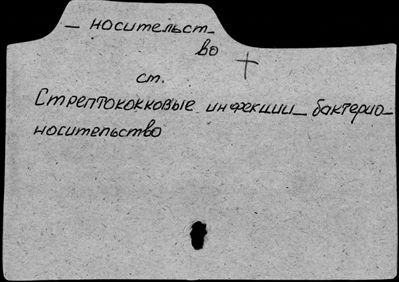 – носительст–
во
ст.
Стрептококковые инфекции – бактерио–
носительство